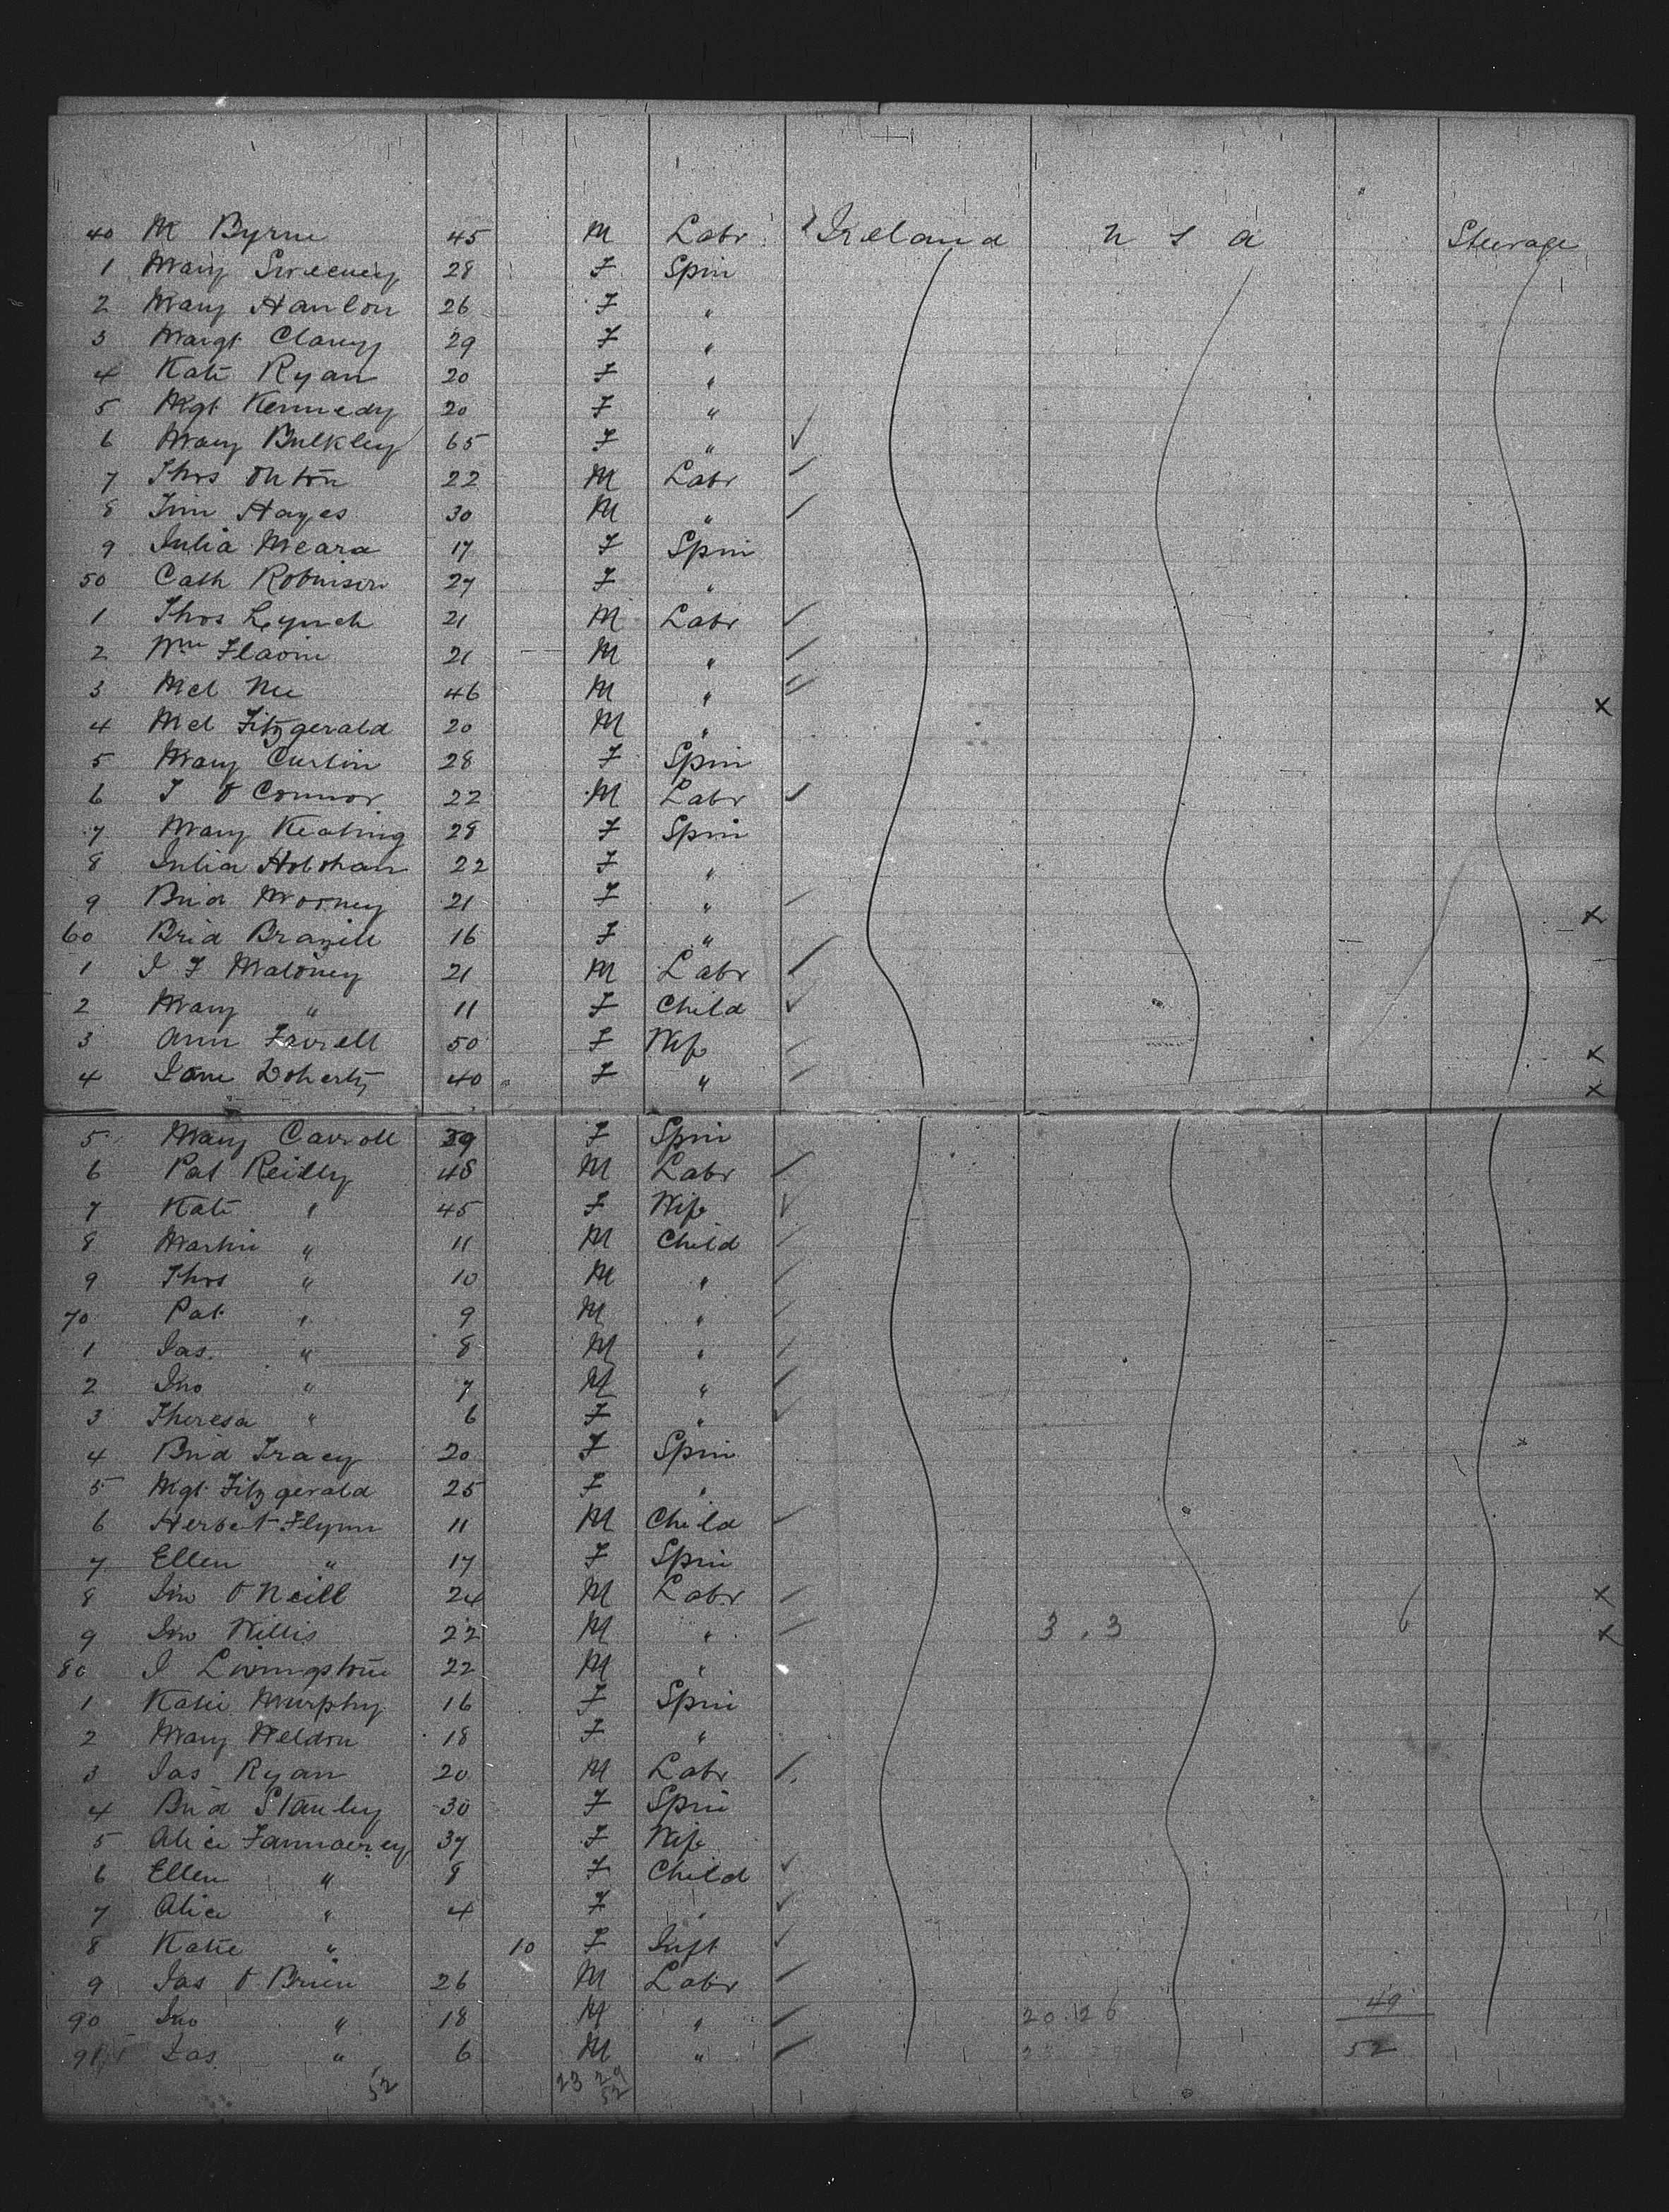 40 M Byrne 45 M Labr Ireland U S a Steerage
1 Mary Sweeney 28 F Spin
2 Mary Hanlon 26 F "
3 Margt Clancy 29 F "
4 Kate Ryan 20 F "
5 Mgt Kennedy 20 F "
6 Mary Bulkley 65 F "
7 Thos 22 M Labr
8 Jim Hayes 30 M "
9 Julia Meara 17 F Spin
50 Cath Robinson 27 F "
1 Thos Lynch 21 M Labr
2 Wm Flavin 21 M "
3 Mcl Nee 46 M "
4 Mcl Fitzgerald 20 M "
5 Mary Curtin 28 F Spin
6 J O Connor 22 M Labr
7 Mary Keating 28 F Spin
8 Julia Holohan 22 F "
9 Brid Mooney 21 F "
60 Brid Brazill 16 F "
1 J F Maloney 21 M Labr
2 Mary " 11 F Child
3 Ann Farrell 50 F Wife
4 Jane Doherty 40 F "
5 Mary Carroll 39 F Spin
6 Pat Reidly 48 M Labr
7 Kate " 45 F Wife
8 Martin " 11 M Child
9 Thos " 10 M "
70 Pat " 9 M "
1 Jas. " 8 M "
2 Jno " 7 M "
3 Theresa " 6 F "
4 Brid Tracey 20 F Spin
5 Mgt Fitzgerald 25 F "
6 Herbert Flynn 11 M Child
7 Ellen " 17 F Spin
8 Jno O Neill 24 M Labr
9 Jno Willis 22 M " 3 . 3 6
80 J Livingstone 22 M "
1 Katie Murphy 16 F Spin
2 Mary Weldon 18 F "
3 Jas Ryan 20 M Labr
4 Brid Stanley 30 F Spin
5 Alice 37 F Wife
6 Ellen " 8 F Child
7 Alice " 4 F "
8 Katie " 10 F Inft
9 Jas O Brien 26 M Labr
90 Jno " 18 M " 20.26 49
91 Jas " 6 M " 52
52 23 29
52